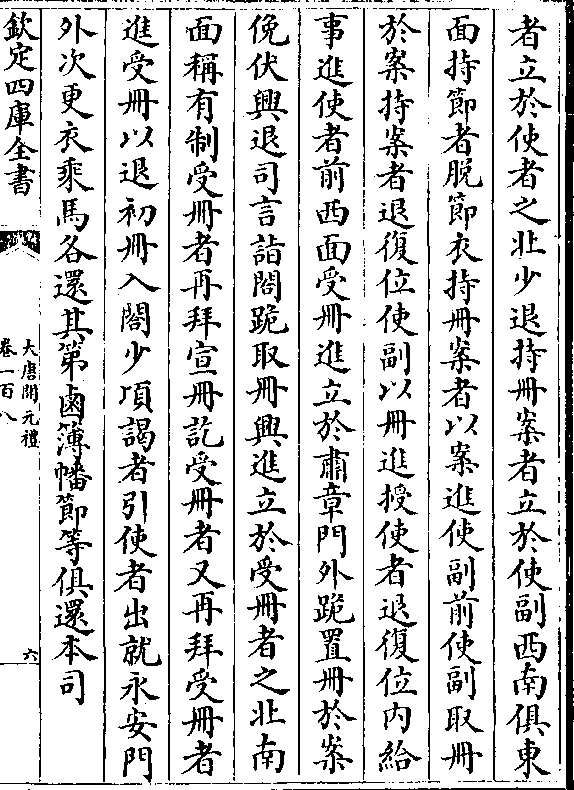 者立於使者之北少退持冊案者立於使副西南俱東
面持節者脫節衣持冊案者以案進使副前使副取冊
於案持案者退復位使副以冊進授使者退復位内給
事進使者前西面受冊進立於肅章門外跪置冊於案
俛伏興退司言詣閤跪取冊興進立於受冊者之北南
面稱有制受冊者再拜宣冊訖受冊者又再拜受冊者
進受冊以退初冊入閤少項謁者引使者出就永安門
外次更衣乘馬各還其第鹵簿幡節等俱還本司
欽定四庫全書
大唐開元禮
卷一百八
六